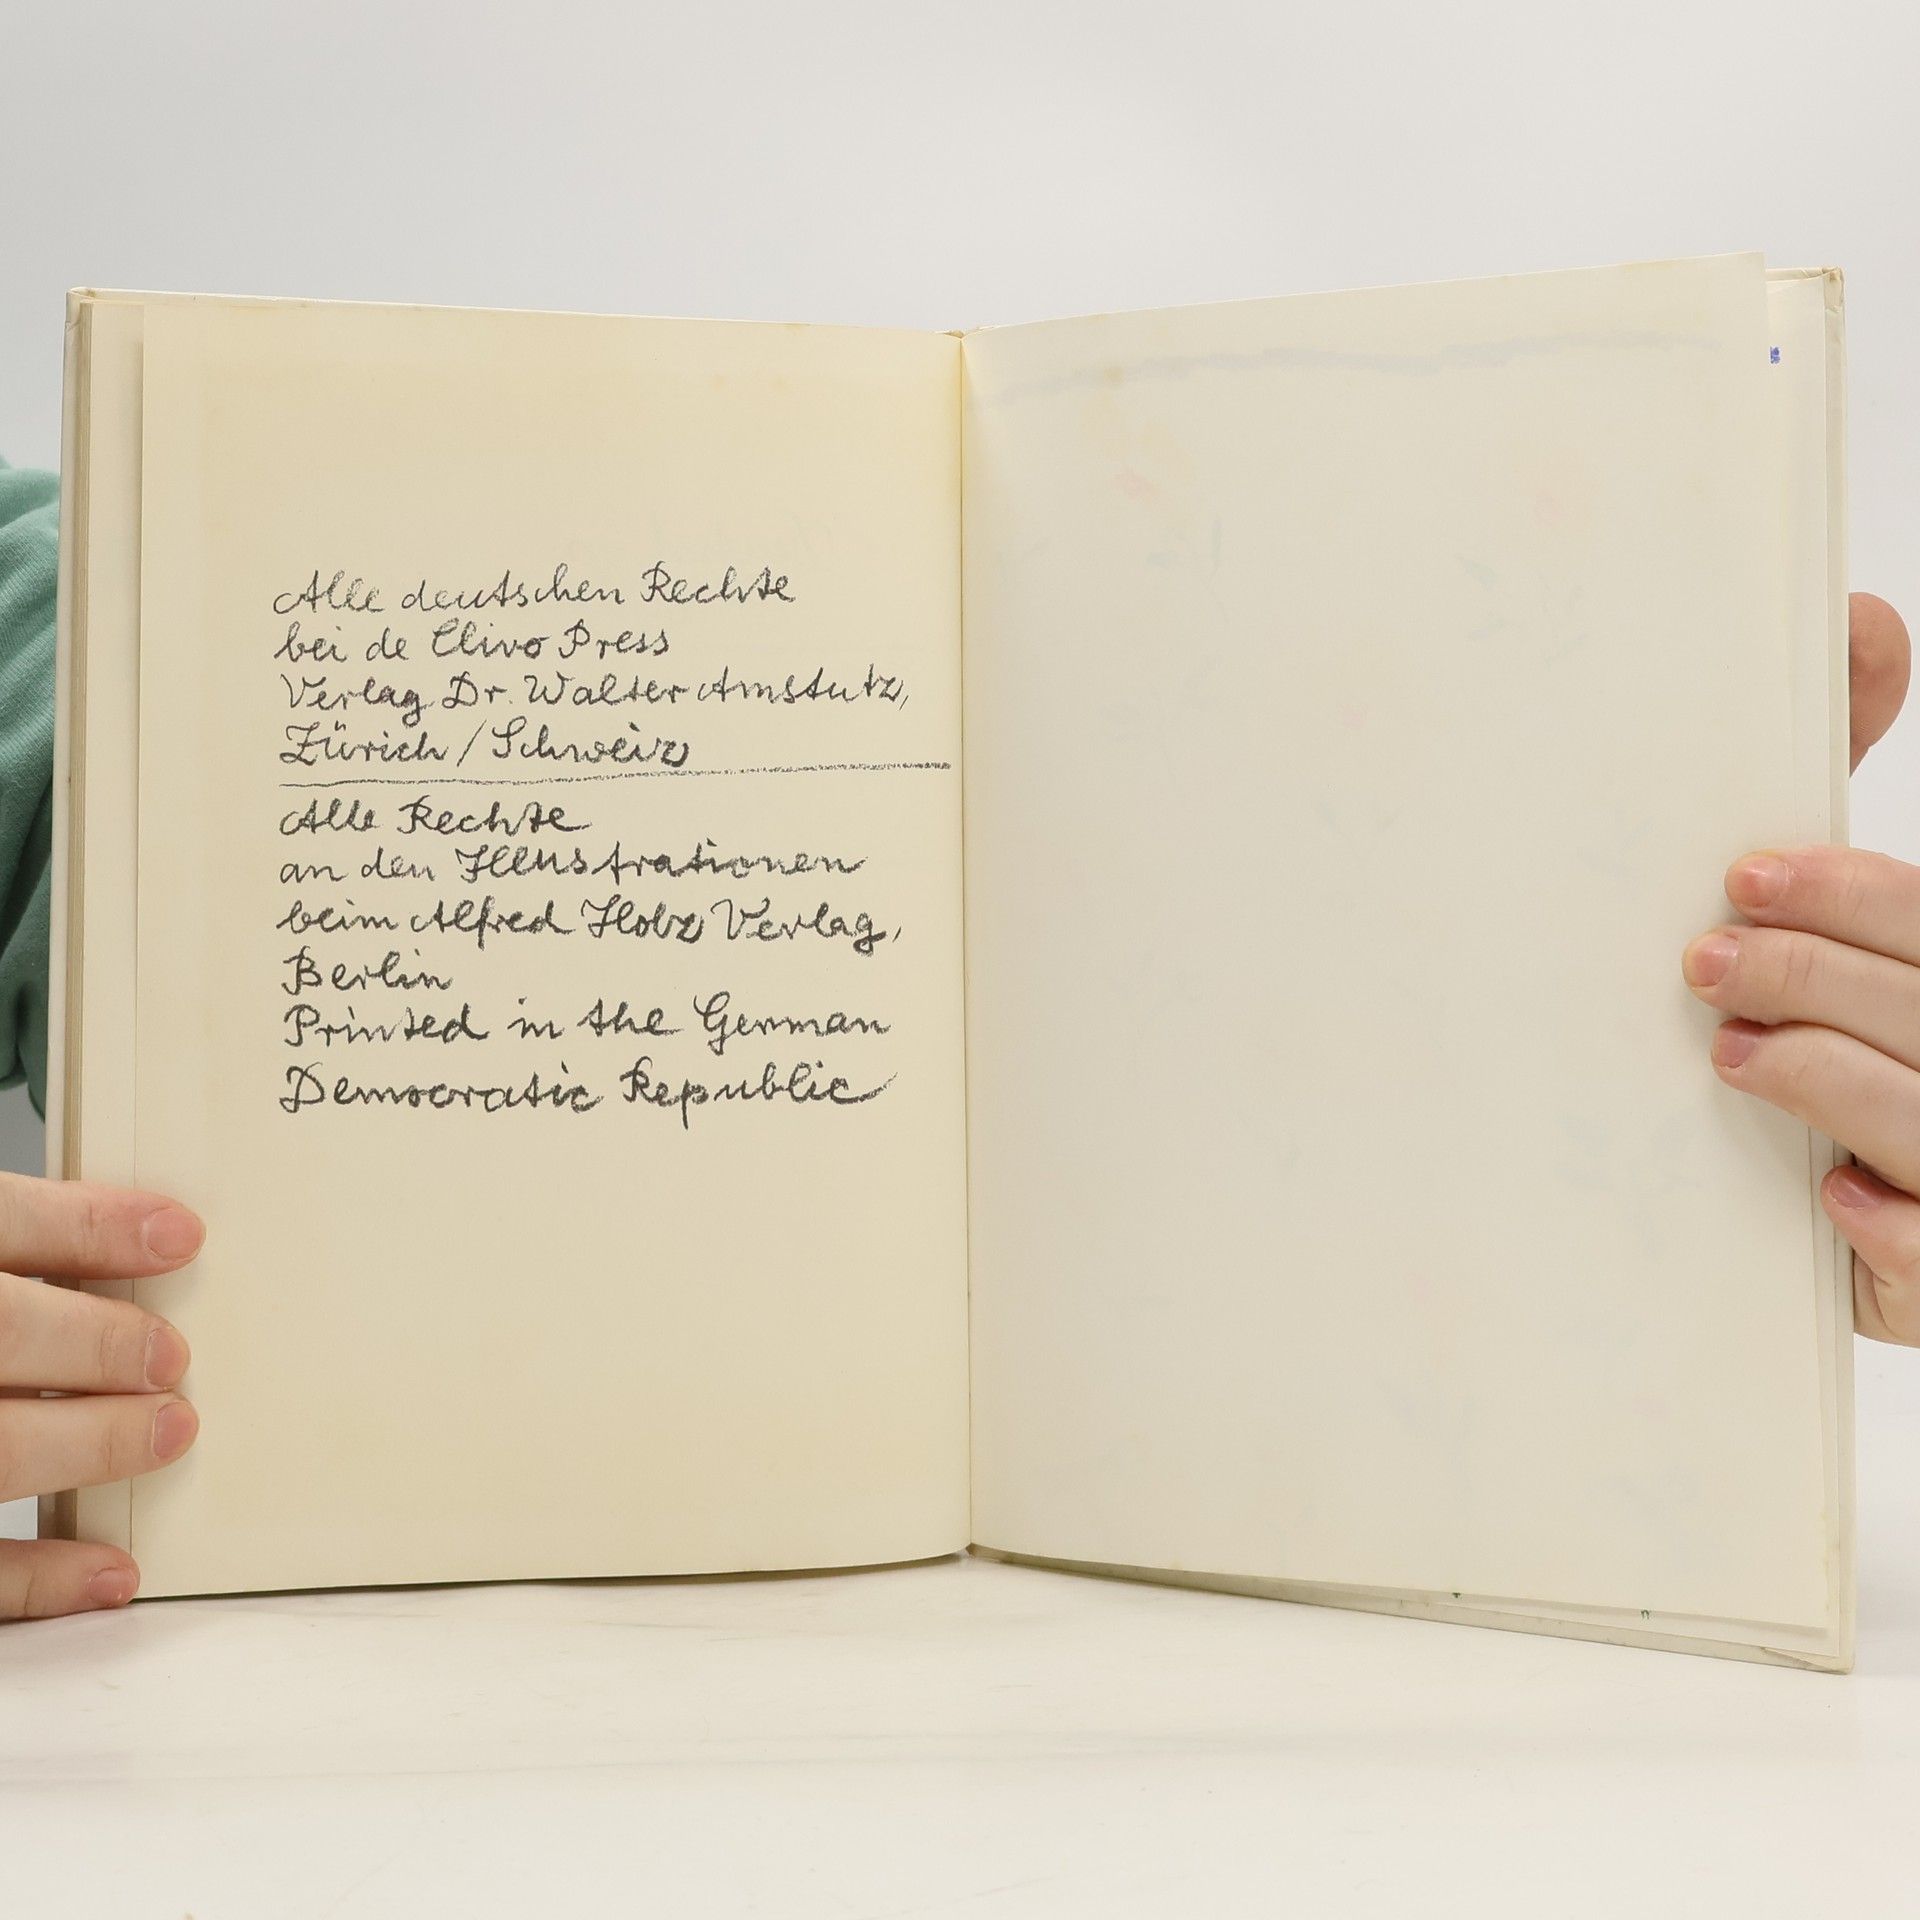 Alle deutschen Rechte
bei de Clivo Press
Verlag Dr. Walter Amstutz,
Zürich / Schweiz
Alle Rechte
an den Illustrationen
beim Alfred Holz Verlag,
Berlin
Printed in the German
Democratic Republic